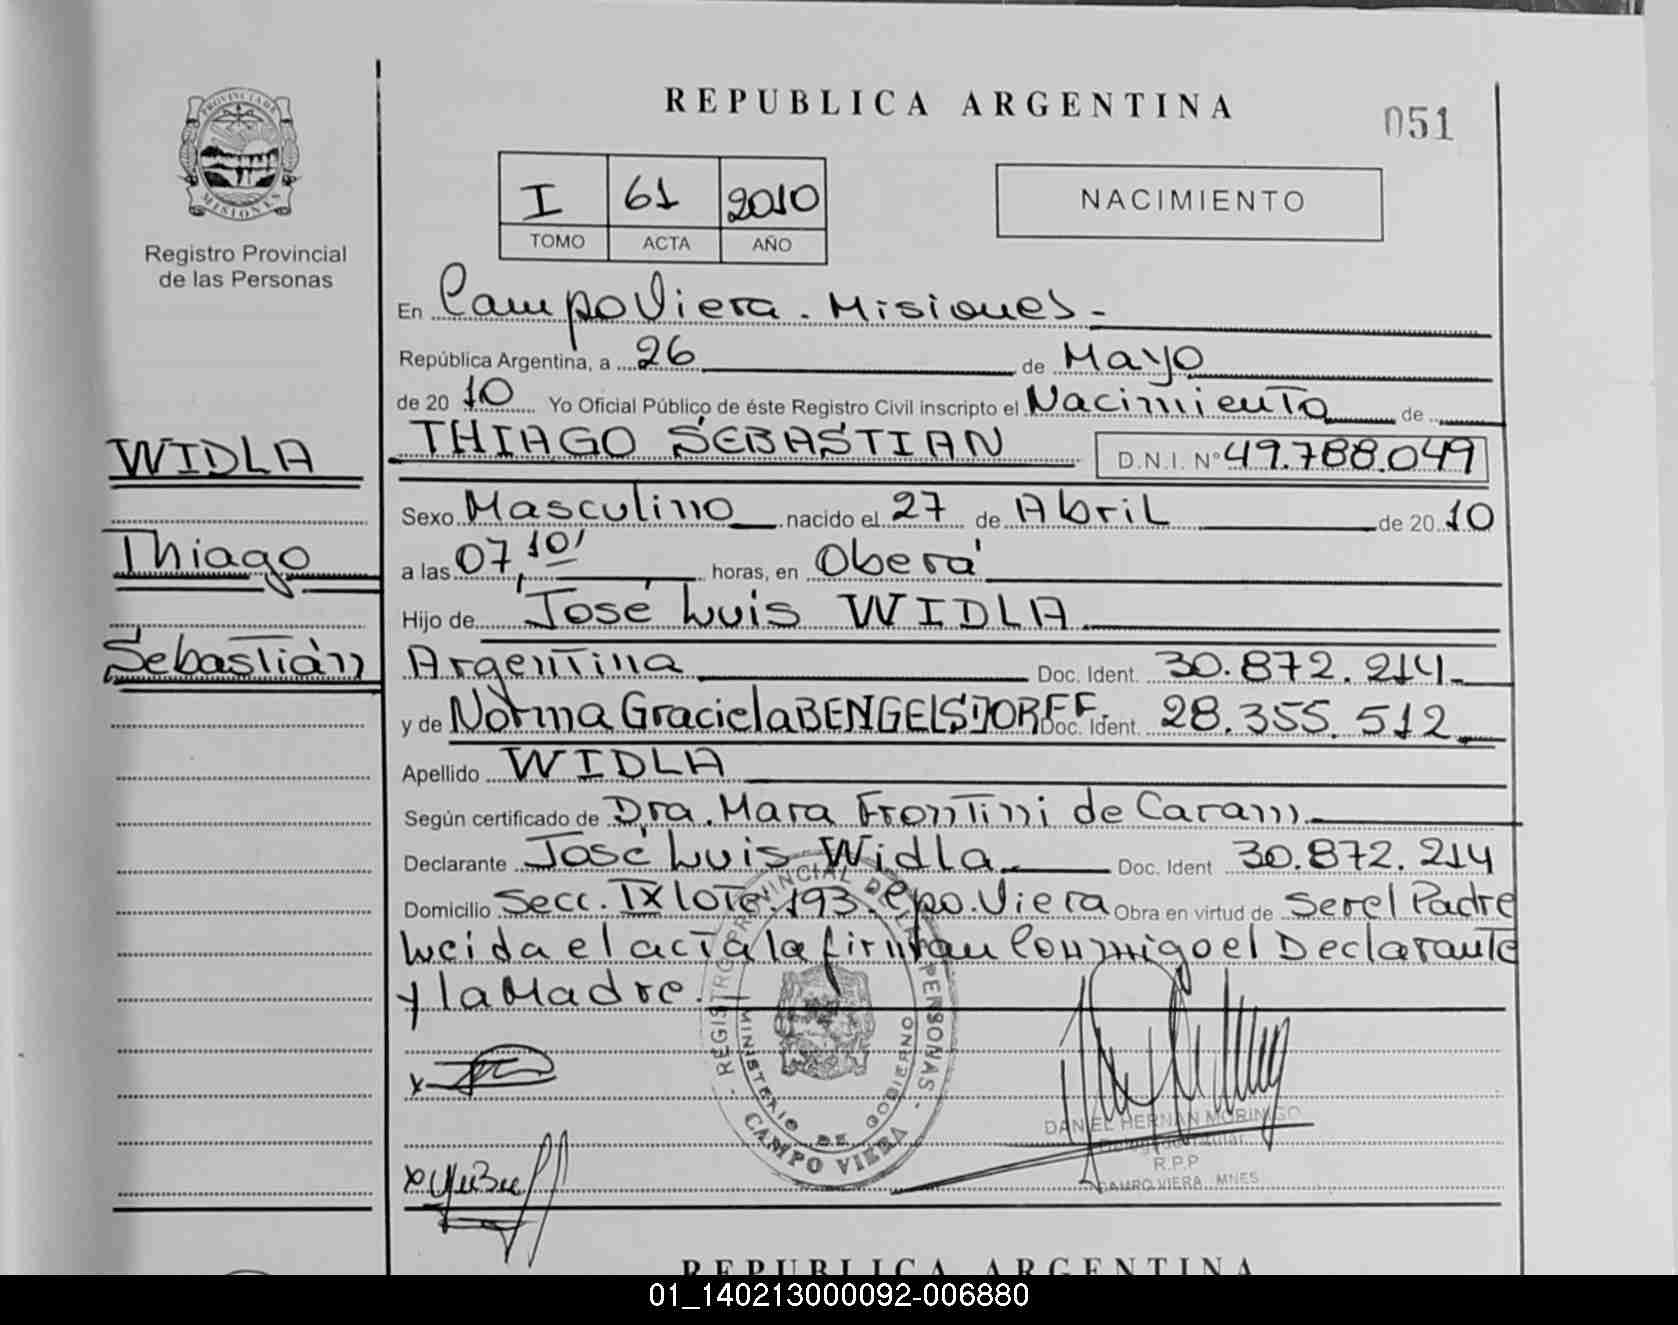 REPUBLICA ARGENTINA
051
PROVINCIA DE MISIONES
Registro Provincial
de las Personas
I 61 2010
TOMO ACTA AÑO
NACIMIENTO
En Campo Viera. Misiones.-
República Argentina, a 26 de Mayo
de 2010 Yo Oficial Público de éste Registro Civil inscripto el Nacimiento de
WIDLA
THIAGO SEBASTIAN D.N.I. Nº 49.788.049
Sexo Masculino nacido el 27 de Abril de 2010
Thiago
a las 07,10' horas, en Oberá
Hijo de José Luis WIDLA
Sebastián
Argentina Doc. Ident. 30.872.214.
y de Norma Graciela BENGELSDORFF. Doc. Ident. 28.355.512
Apellido WIDLA
Según certificado de Dra. Mara Frontini de Caram
Declarante José Luis Widla Doc. Ident 30.872.214
Domicilio Secc. IX lote.193. Cpo. Viera Obra en virtud de ser el Padre
Leida el acta la firman Conmigo el Declarante
y la Madre.
REGISTRO PROVINCIAL DE LAS PERSONAS
MINISTERIO DE GOBIERNO
CAMPO VIERA
x
x
DANIEL HERNAN MORINIGO
R.P.P
CAMPO VIERA MNES
REPUBLICA ARGENTINA
01_140213000092-006880